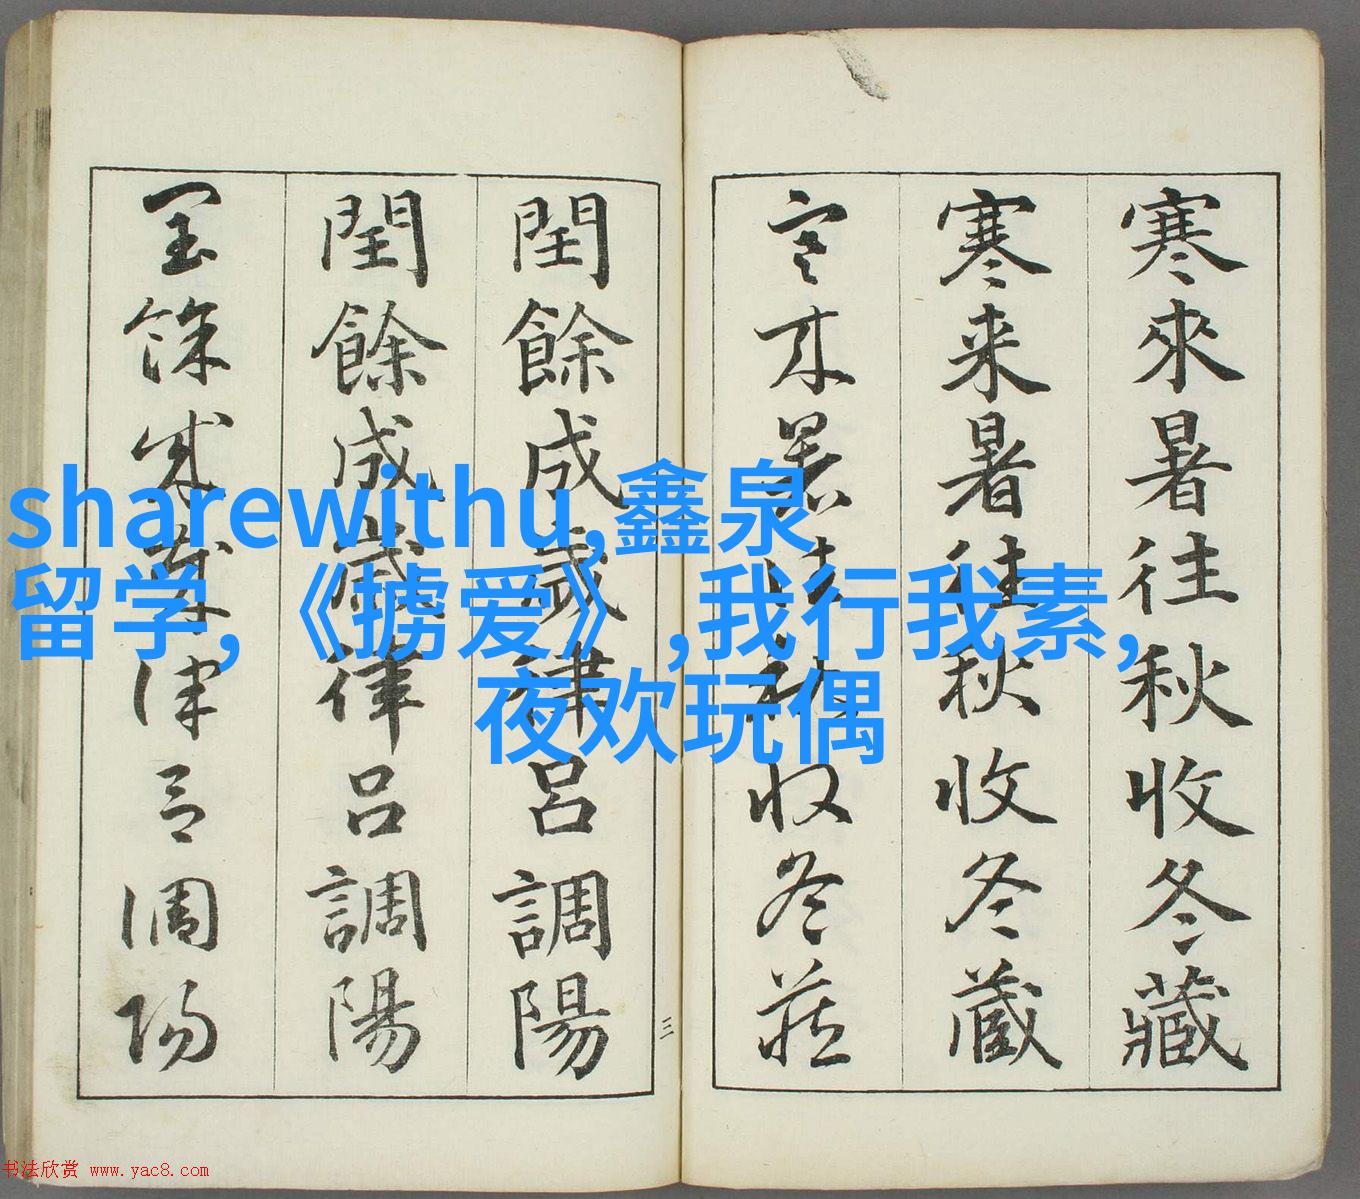 寒來暑往秋收冬藏
寒来暑往秋收冬蔵
寒来暑往秋收冬藏
三
閏餘成歲律呂調陽
閏餘成歲律呂調陽
閏餘成歲律呂調陽
sharewithu,鑫泉
留学,《掳爱》,我行我素,
夜欢玩偶
书法欣赏 www.yac8.com